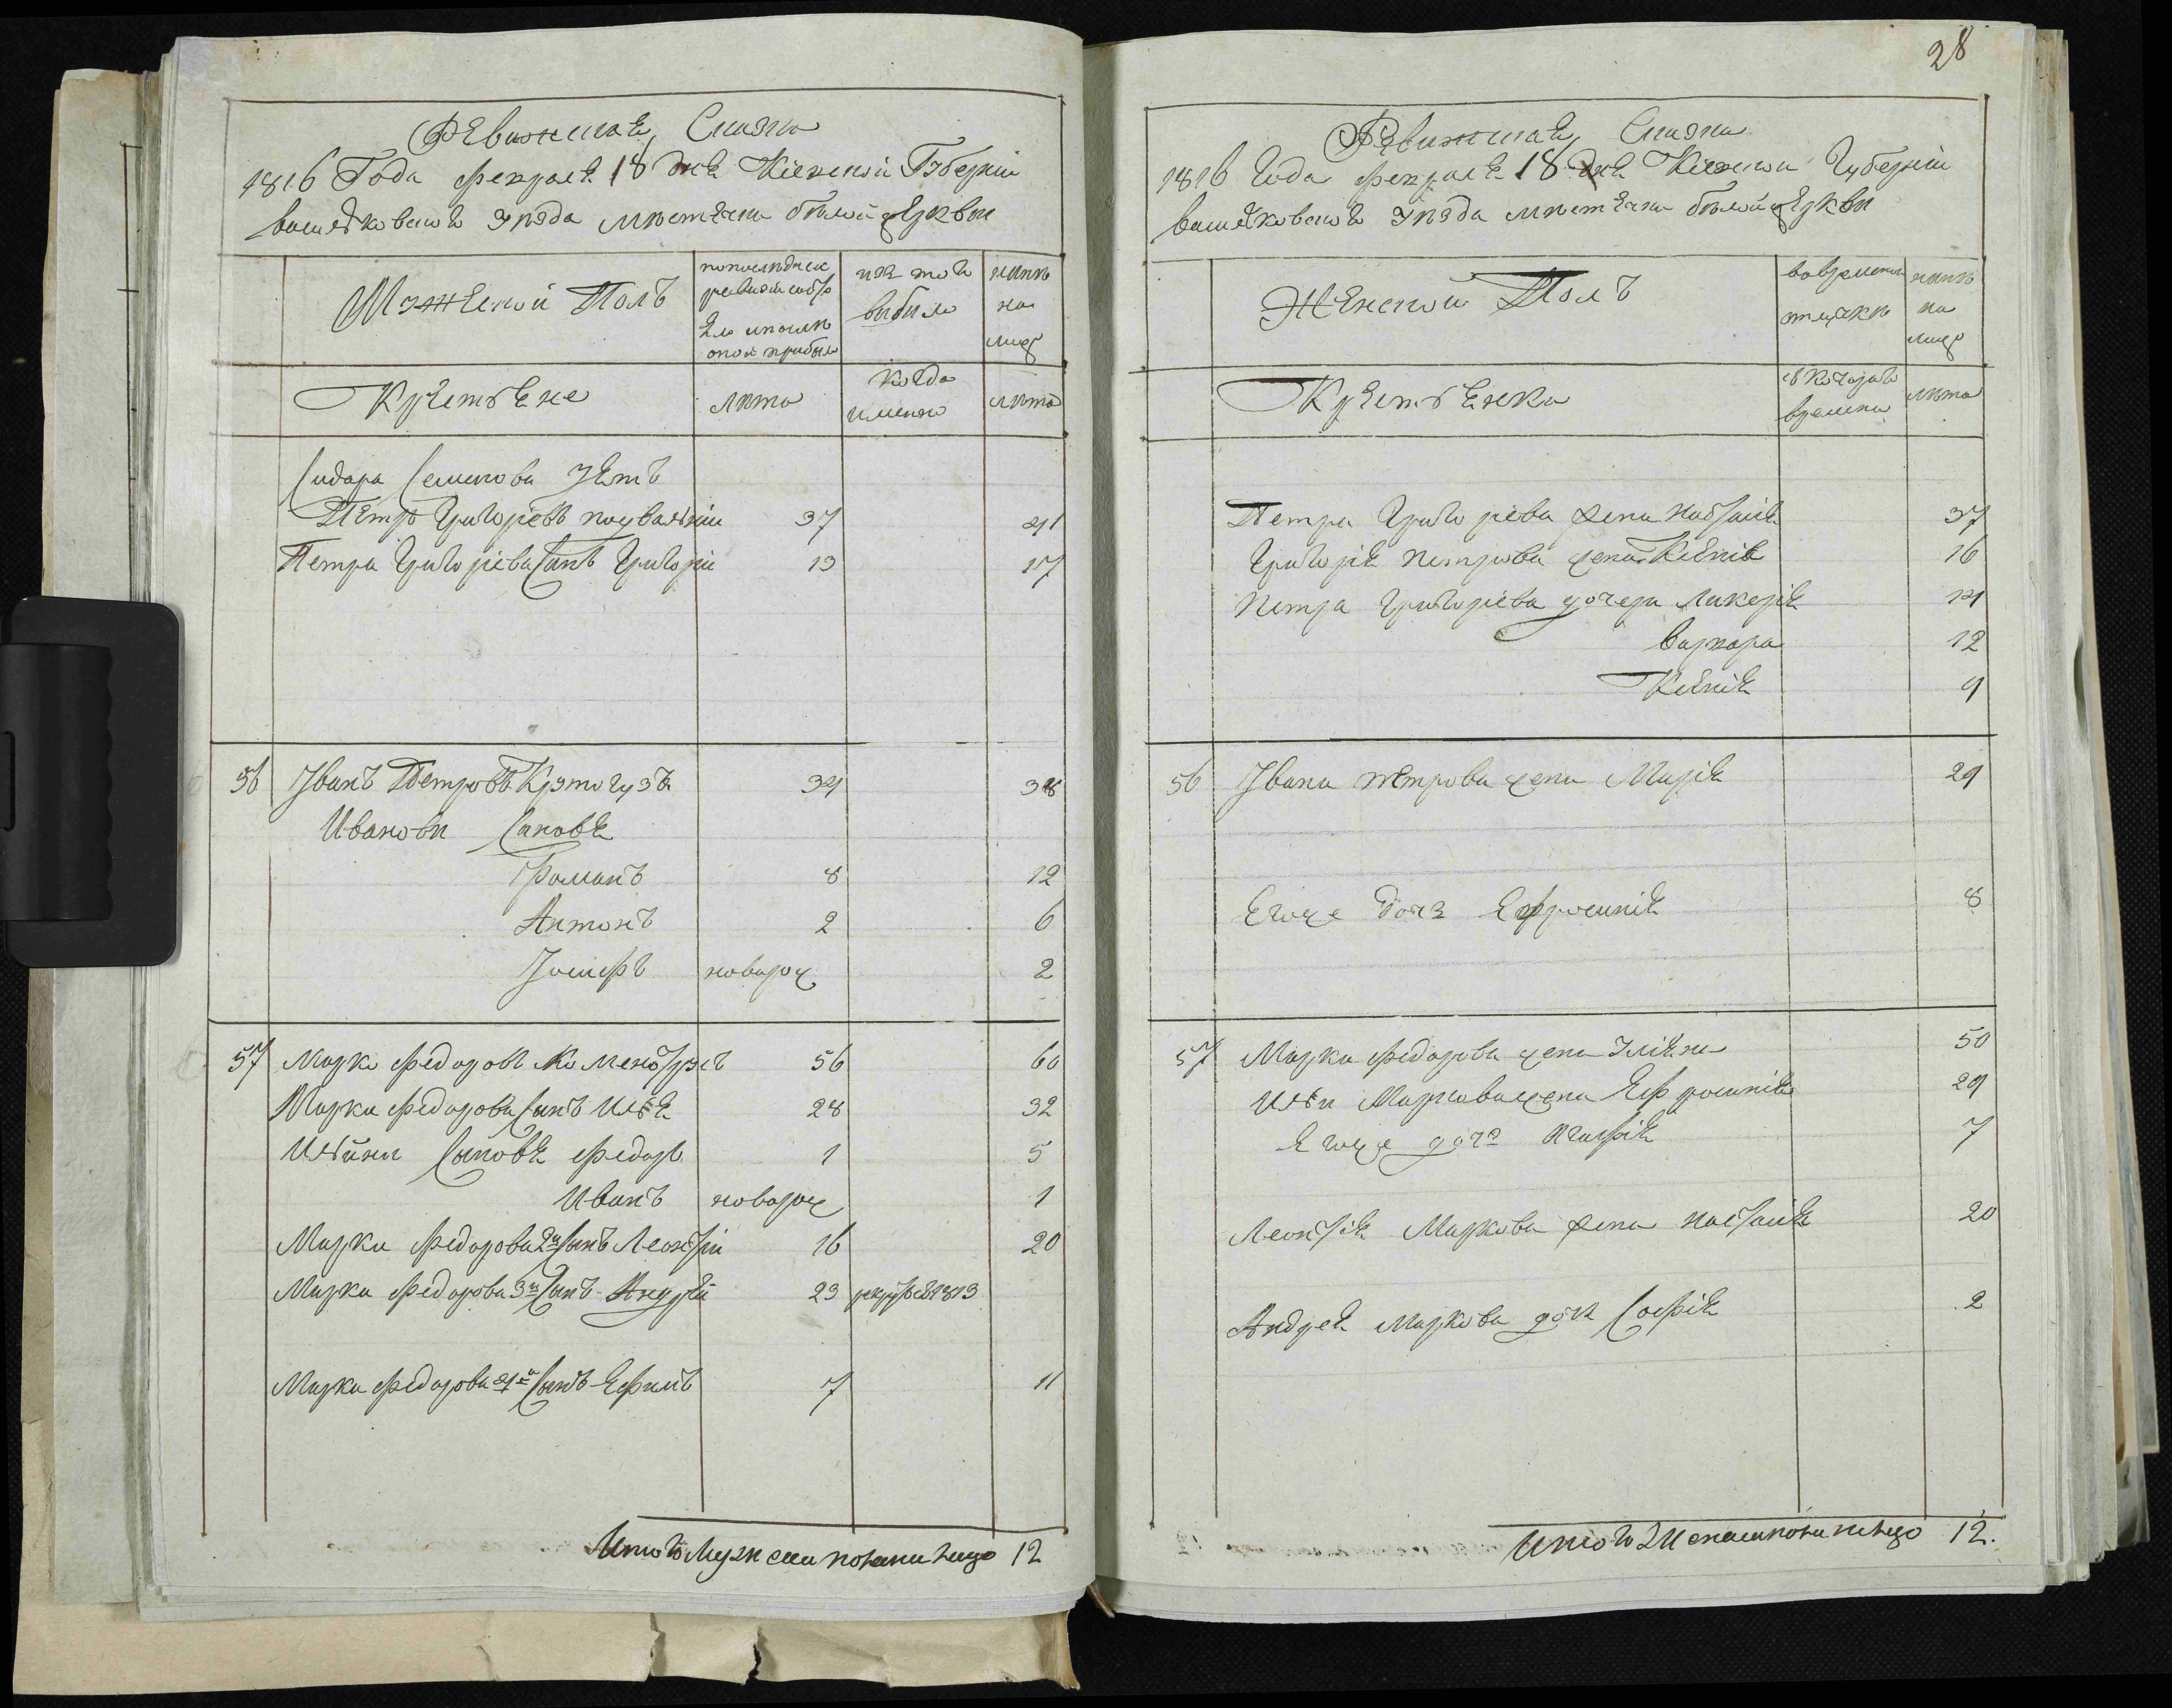 Ревижская Сказка
1816 Года февраля 18 дня Кіевской Губерніи
васильковского Уезда местечка белой церкви
Мужеской Полъ
по последней ревизіи состояло и после оной прибыло
изъ того выбыло
ныне на лицо
Крестьяне
лета
когда именно
лета
Сидора Семенова Зять
Петръ Григорієвъ 37 41
Петра Григоріева Сынъ Григорій 13 17
56 Іванъ Петровъ 34 38
Ивановы Сыновя
Романъ 8 12
Антонъ 2 6
Іосифъ новорож 2
57 Марко Федоровъ 56 60
Марка Федорова Сынъ Илья 28 32
Ильины Сыновя Федоръ 1 5
Иванъ новорож 1
Марка Федорова 2й Сынъ Леонтій 16 20
Марка Федорова 3й Сынъ Андрей 23 рекрут въ 1813
Марка Федорова 4й Сынъ Ефимъ 7 11
Итого Мужеска пола на лицо 12
28
Ревижская Сказка
1816 Года февраля 18 дня Кіевской Губерніи
васильковского Уезда местечка белой церкви
Женской Полъ
во временной отлучке
ныне на лицо
Крестьянки
съ которого времени
лета
Петра Григоріева жена Настасія 37
Григорія Петрова жена Ксенія 16
Петра Григоріева дочери Ликерія 14
Варвара 12
Ксенія 9
56 Івана Петрова жена Марія 29
Егоже дочь Ефросинія 8
57 Марка Федорова жена Уліяна 50
Ильи Маркова жена Ефросинія 29
Егоже дочь Агафія 7
Леонтія Маркова жена Настасія 20
Андрея Маркова доч Софія 2
Итого Женска пола на лицо 12.